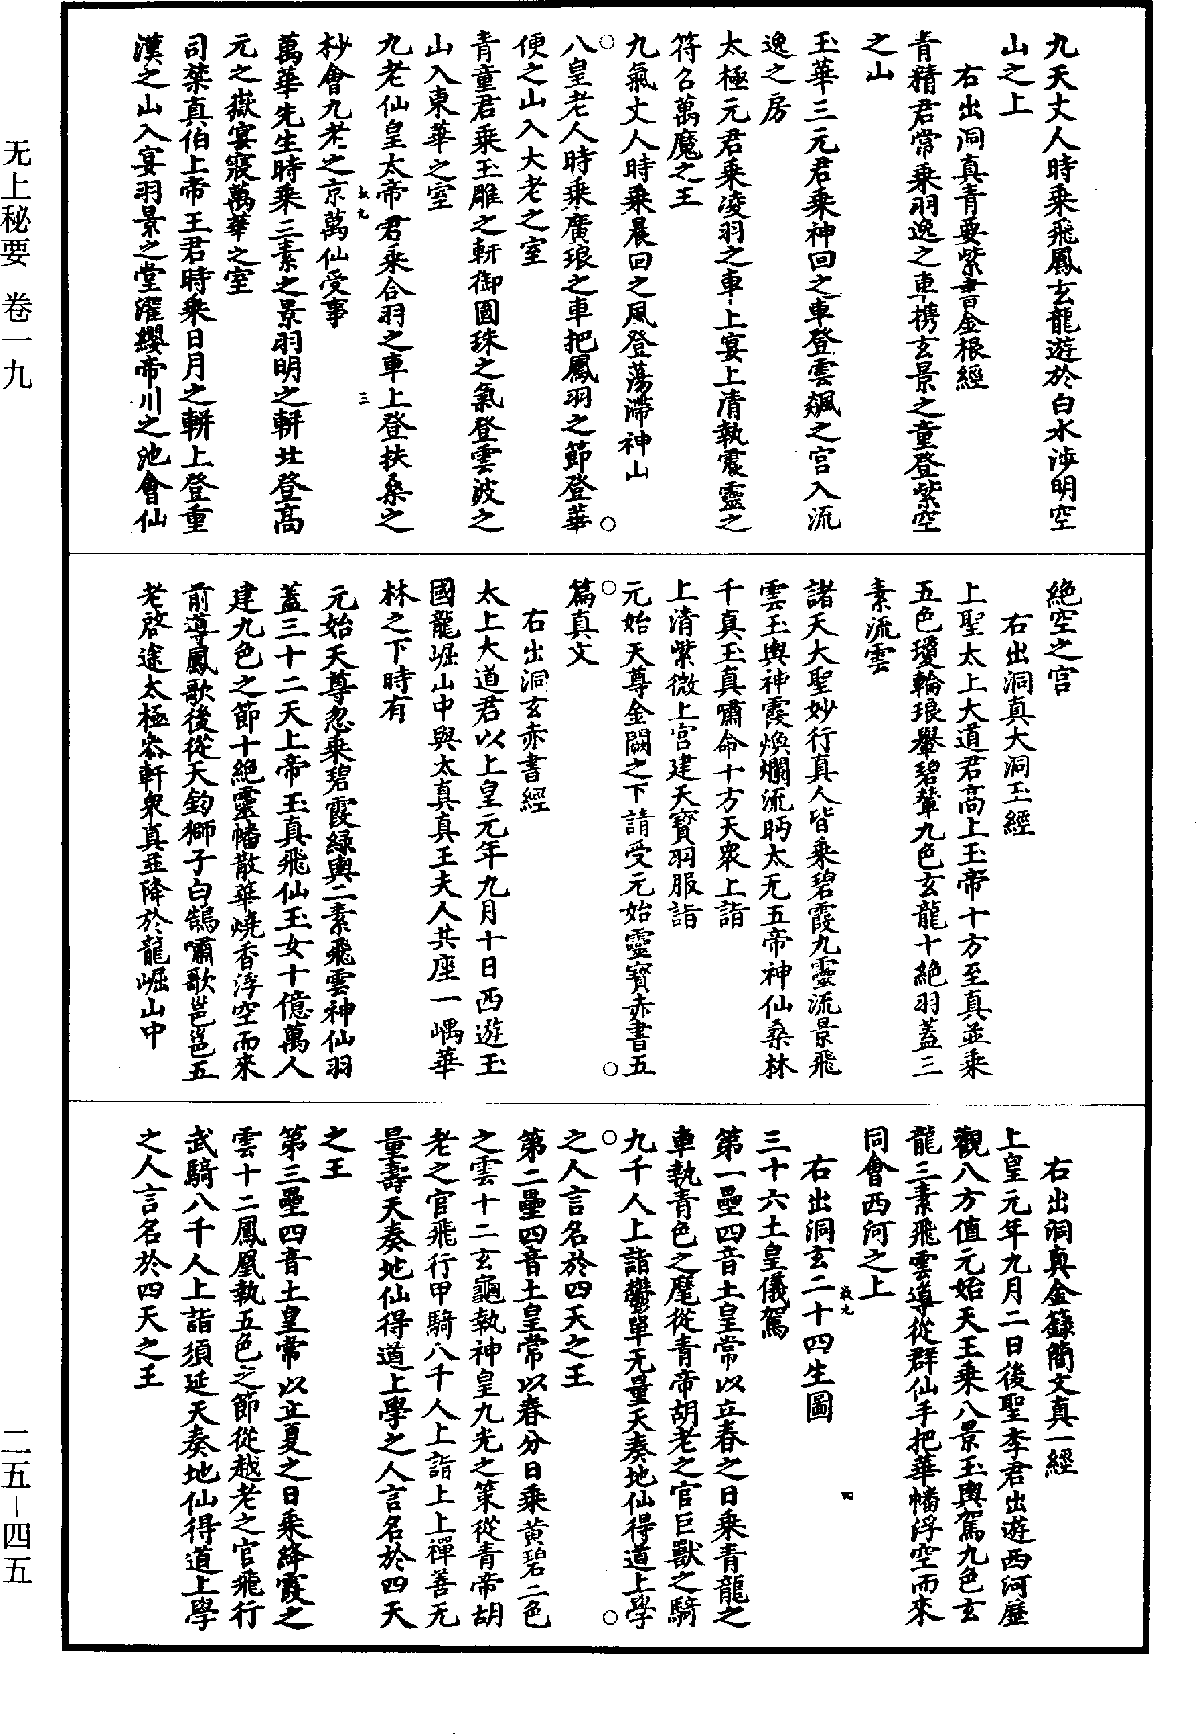 无上秘要 卷一九
二五－四五
九天丈人時乘飛鳳玄龍遊於白水涉明空
山之上
右出洞真青要紫書金根經
青精君常乘羽逸之車携玄景之童登紫空
之山
玉華三元君乘神回之車登雲飆之宮入流
逸之房
太極元君乘凌羽之車上宴上清執震靈之
符召萬魔之王
九氣丈人時乘晨回之風登蕩滯神山
八皇老人時乘廣琅之車把鳳羽之節登華
便之山入大老之室
青童君乘玉雕之軿御圓珠之氣登雲波之
山入東華之室
九老仙皇太帝君乘合羽之車上登扶桑之
杪會九老之京萬仙受事
三
萬華先生時乘三素之景羽明之軿北登高
元之嶽宴寢萬華之室
司禁真伯上帝王君時乘日月之軿上登重
漢之山入宴羽景之堂濯纓帝川之池會仙
絕空之宮
右出洞真大洞玉經
上聖太上大道君高上玉帝十方至真並乘
五色瓊輪琅轝碧輦九色玄龍十絕羽蓋三
素流雲
諸天大聖妙行真人皆乘碧霞九靈流景飛
雲玉輿神霞煥爛流眄太无五帝神仙桑林
千真玉真嘯命十方天衆上詣
上清紫微上宮建天寶羽服詣
元始天尊金闕之下請受元始靈寶赤書五
篇真文
右出洞玄赤書經
太上大道君以上皇元年九月十日西遊玉
國龍崛山中與太真真王夫人共座一嵎華
林之下時有
元始天尊忽乘碧霞綠輿二素飛雲神仙羽
蓋三十二天上帝玉真飛仙玉女十億萬人
建九色之節十絕靈幡散華燒香浮空而來
前導鳳歌後從天鈞獅子白鵠嘯歌邕邕五
老啓途太極參軒衆真並降於龍崛山中
右出洞真金籙簡文真一經
上皇元年九月二日後聖李君出遊西河歷
觀八方值元始天王乘八景玉輿駕九色玄
龍三素飛雲導從群仙手把華幡浮空而來
同會西河之上
四
右出洞玄二十四生圖
三十六土皇儀駕
第一壘四音土皇常以立春之日乘青龍之
車執青色之麾從青帝胡老之官巨獸之騎
九千人上詣鬱單无量天奏地仙得道上學
之人言名於四天之王
第二壘四音土皇常以春分日乘黃碧二色
之雲十二玄龜執神皇九光之策從青帝胡
老之官飛行甲騎八千人上詣上上禪善无
量壽天奏地仙得道上學之人言名於四天
之王
第三壘四音土皇常以立夏之日乘絳霞之
雲十二鳳凰執五色之節從越老之官飛行
武騎八千人上詣須延天奏地仙得道上學
之人言名於四天之王